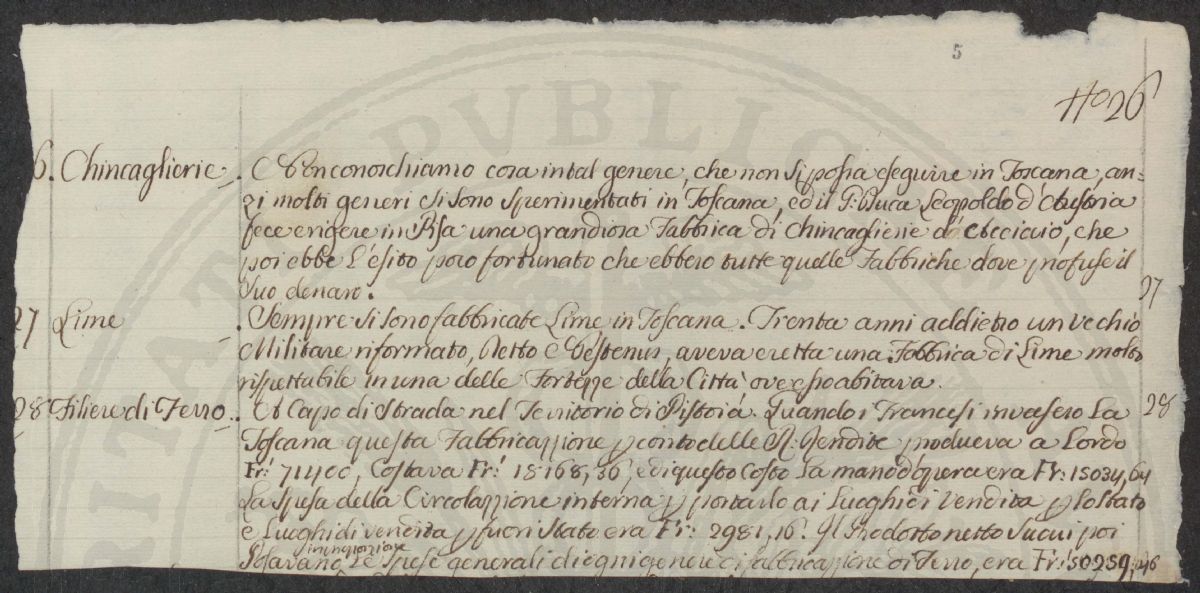 5
No 26
26. Chincaglierie. Non conoschiamo cosa in tal genere, che non si possa eseguire in Toscana, an=
zi molti generi si sono sperimentati in Toscana, ed il P: Duca Leopoldo d'Austria
fece erigere in Pisa una grandiosa Fabbrica di Chincaglierie d'Acciaio, che
poi ebbe l'esito poco fortunato che ebbero tutte quelle Fabbriche dove profuse il
Suo denaro. 27
27 Lime . Sempre si sono fabbricate Lime in Toscana. Trenta anni addietro un vechio
Militare riformato, Detto aveva eretta una Fabbrica di Lime molto
rispettabile in una delle Fortezze della Città ove esso abitava.
28 Filiere di Ferro. A Capo di Strada nel Territorio di Pistoia. Quando i Francesi invasero la 28
Toscana questa Fabbricazzione p conto delle R: Rendite produeva a Lordo
Fr: 71400, Costava Fr: 18168,36, e di questo Costo la mano d'opera era Fr: 15034,64
La Spesa della Circolazzione interna p portarlo ai Luoghi di Vendita p lo Stato
e Luoghi di vendita p fuori Stato era Fr: 2981,16. Il Prodotto netto su cui poi
in proporzione
Posavano le Spese generali di ogni genere di fabbricazzione di Ferro, era Fr: 50259,46